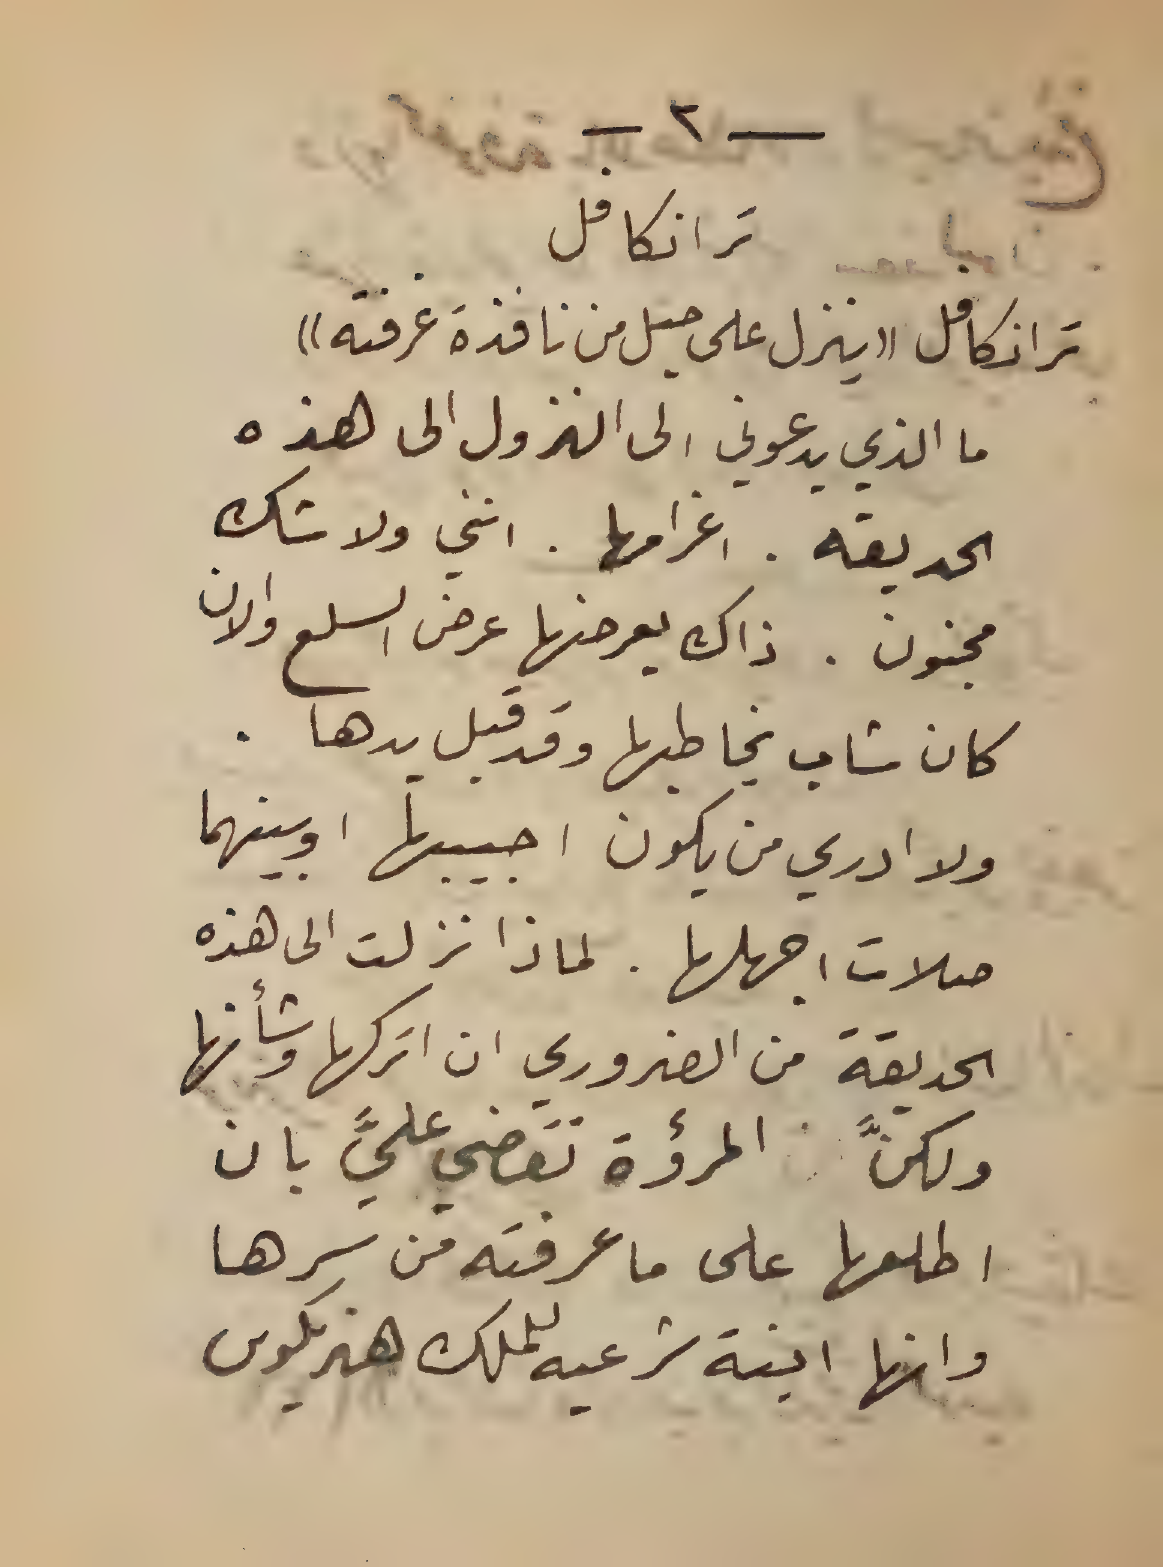 — ٢ —
ترانكافل
ترانكافل «ينزل على حبل من نافذة غرفته»
ما الذي يدعوني الى النزول الى هذه
الحديقه . اغرامها . انني ولا شك
مجنون . ذاك يعرضها عرض السلع والان
كان شاب يخاطبها وقد قبل يدها .
ولا ادري من يكون احبيبها اوبينهما
صلات اجهلها . لماذا نزلت الى هذه
الحديقة من الضروري ان اتركها وشأنها
ولكنَّ المرؤة تقضي عليَّ بان
اطلعها على ما عرفته من سرها
وانها ابنة شرعيه للملك هنريكوس